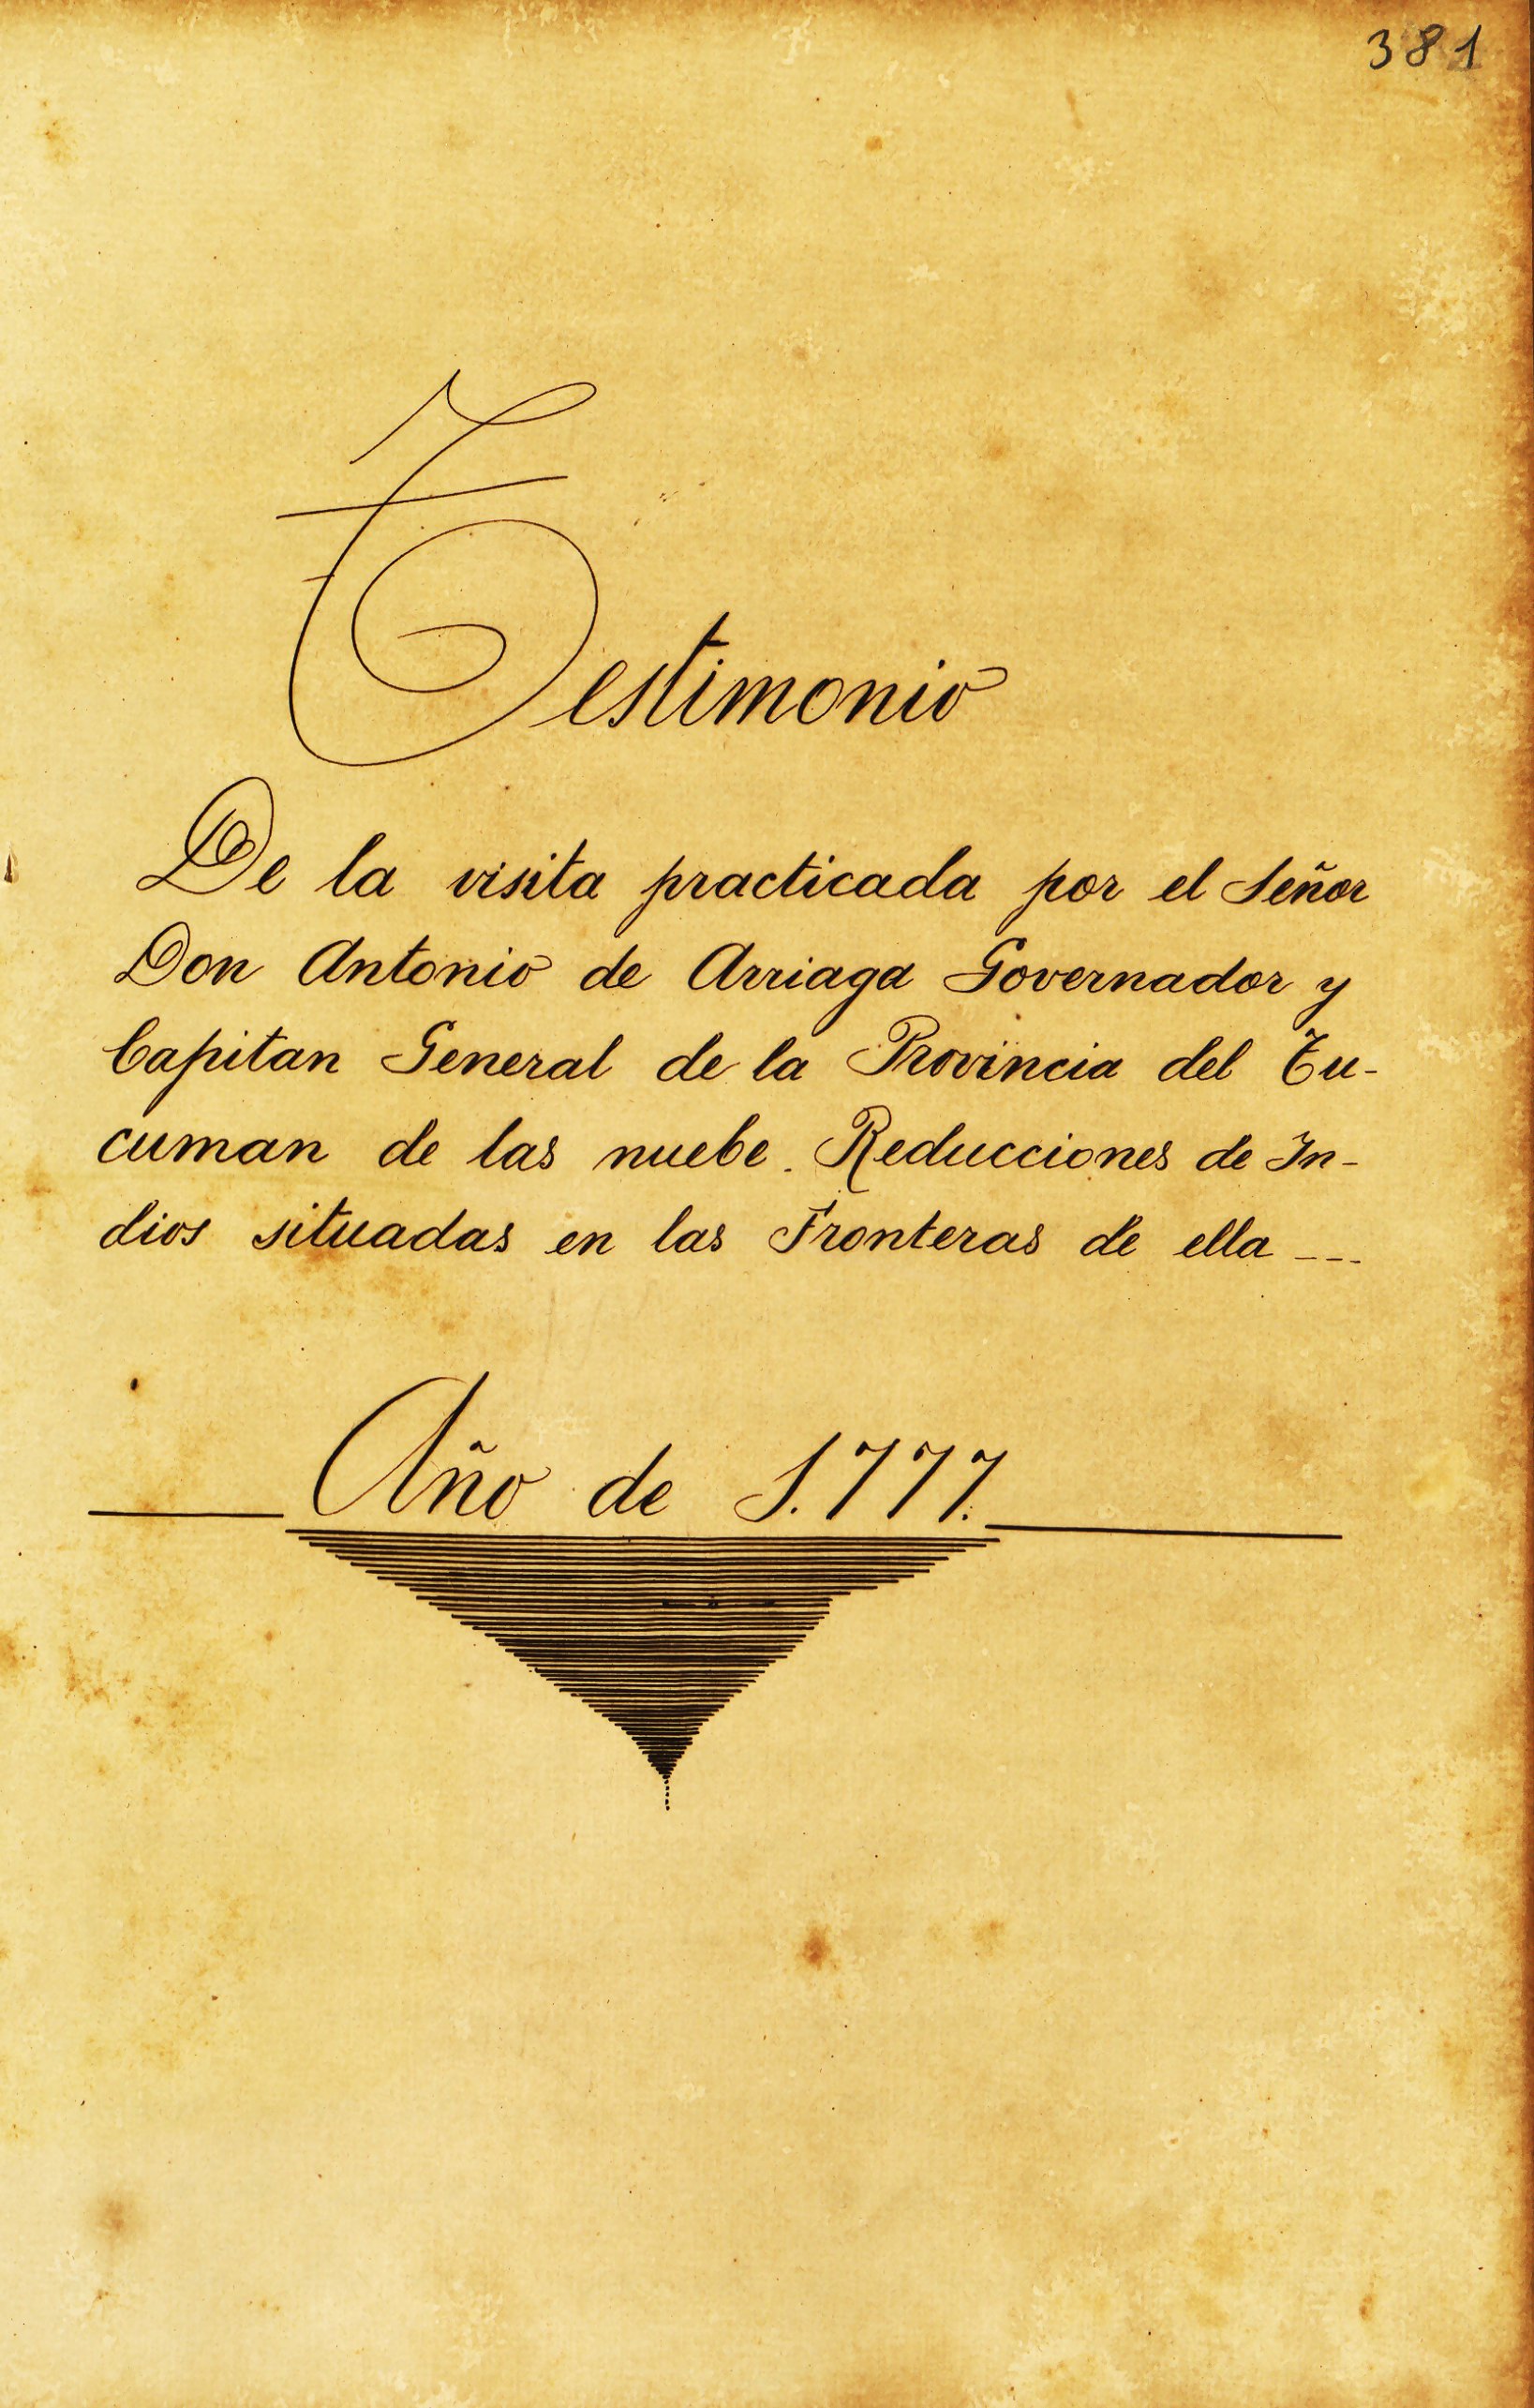 381
Testimonio
De la visita practicada por el Señor
Don Antonio de Arriaga Governador y
Capitan General de la Provincia del Tu-
cuman de las nuebe. Reducciones de In-
dios situadas en las Fronteras de ella ---
Año de 1.777.